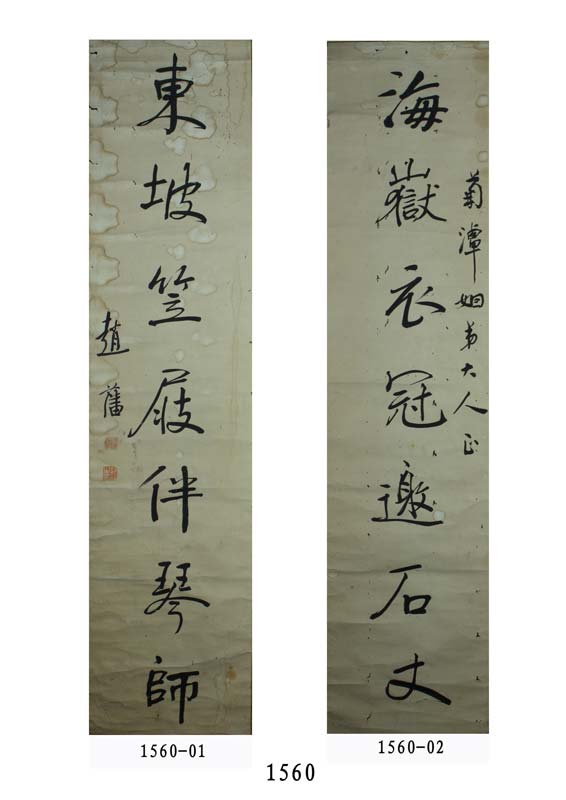 菊潭姻弟大人正
海嶽衣冠邀石丈
東坡笠屐伴琴師
趙藩
1560-01
1560-02
1560